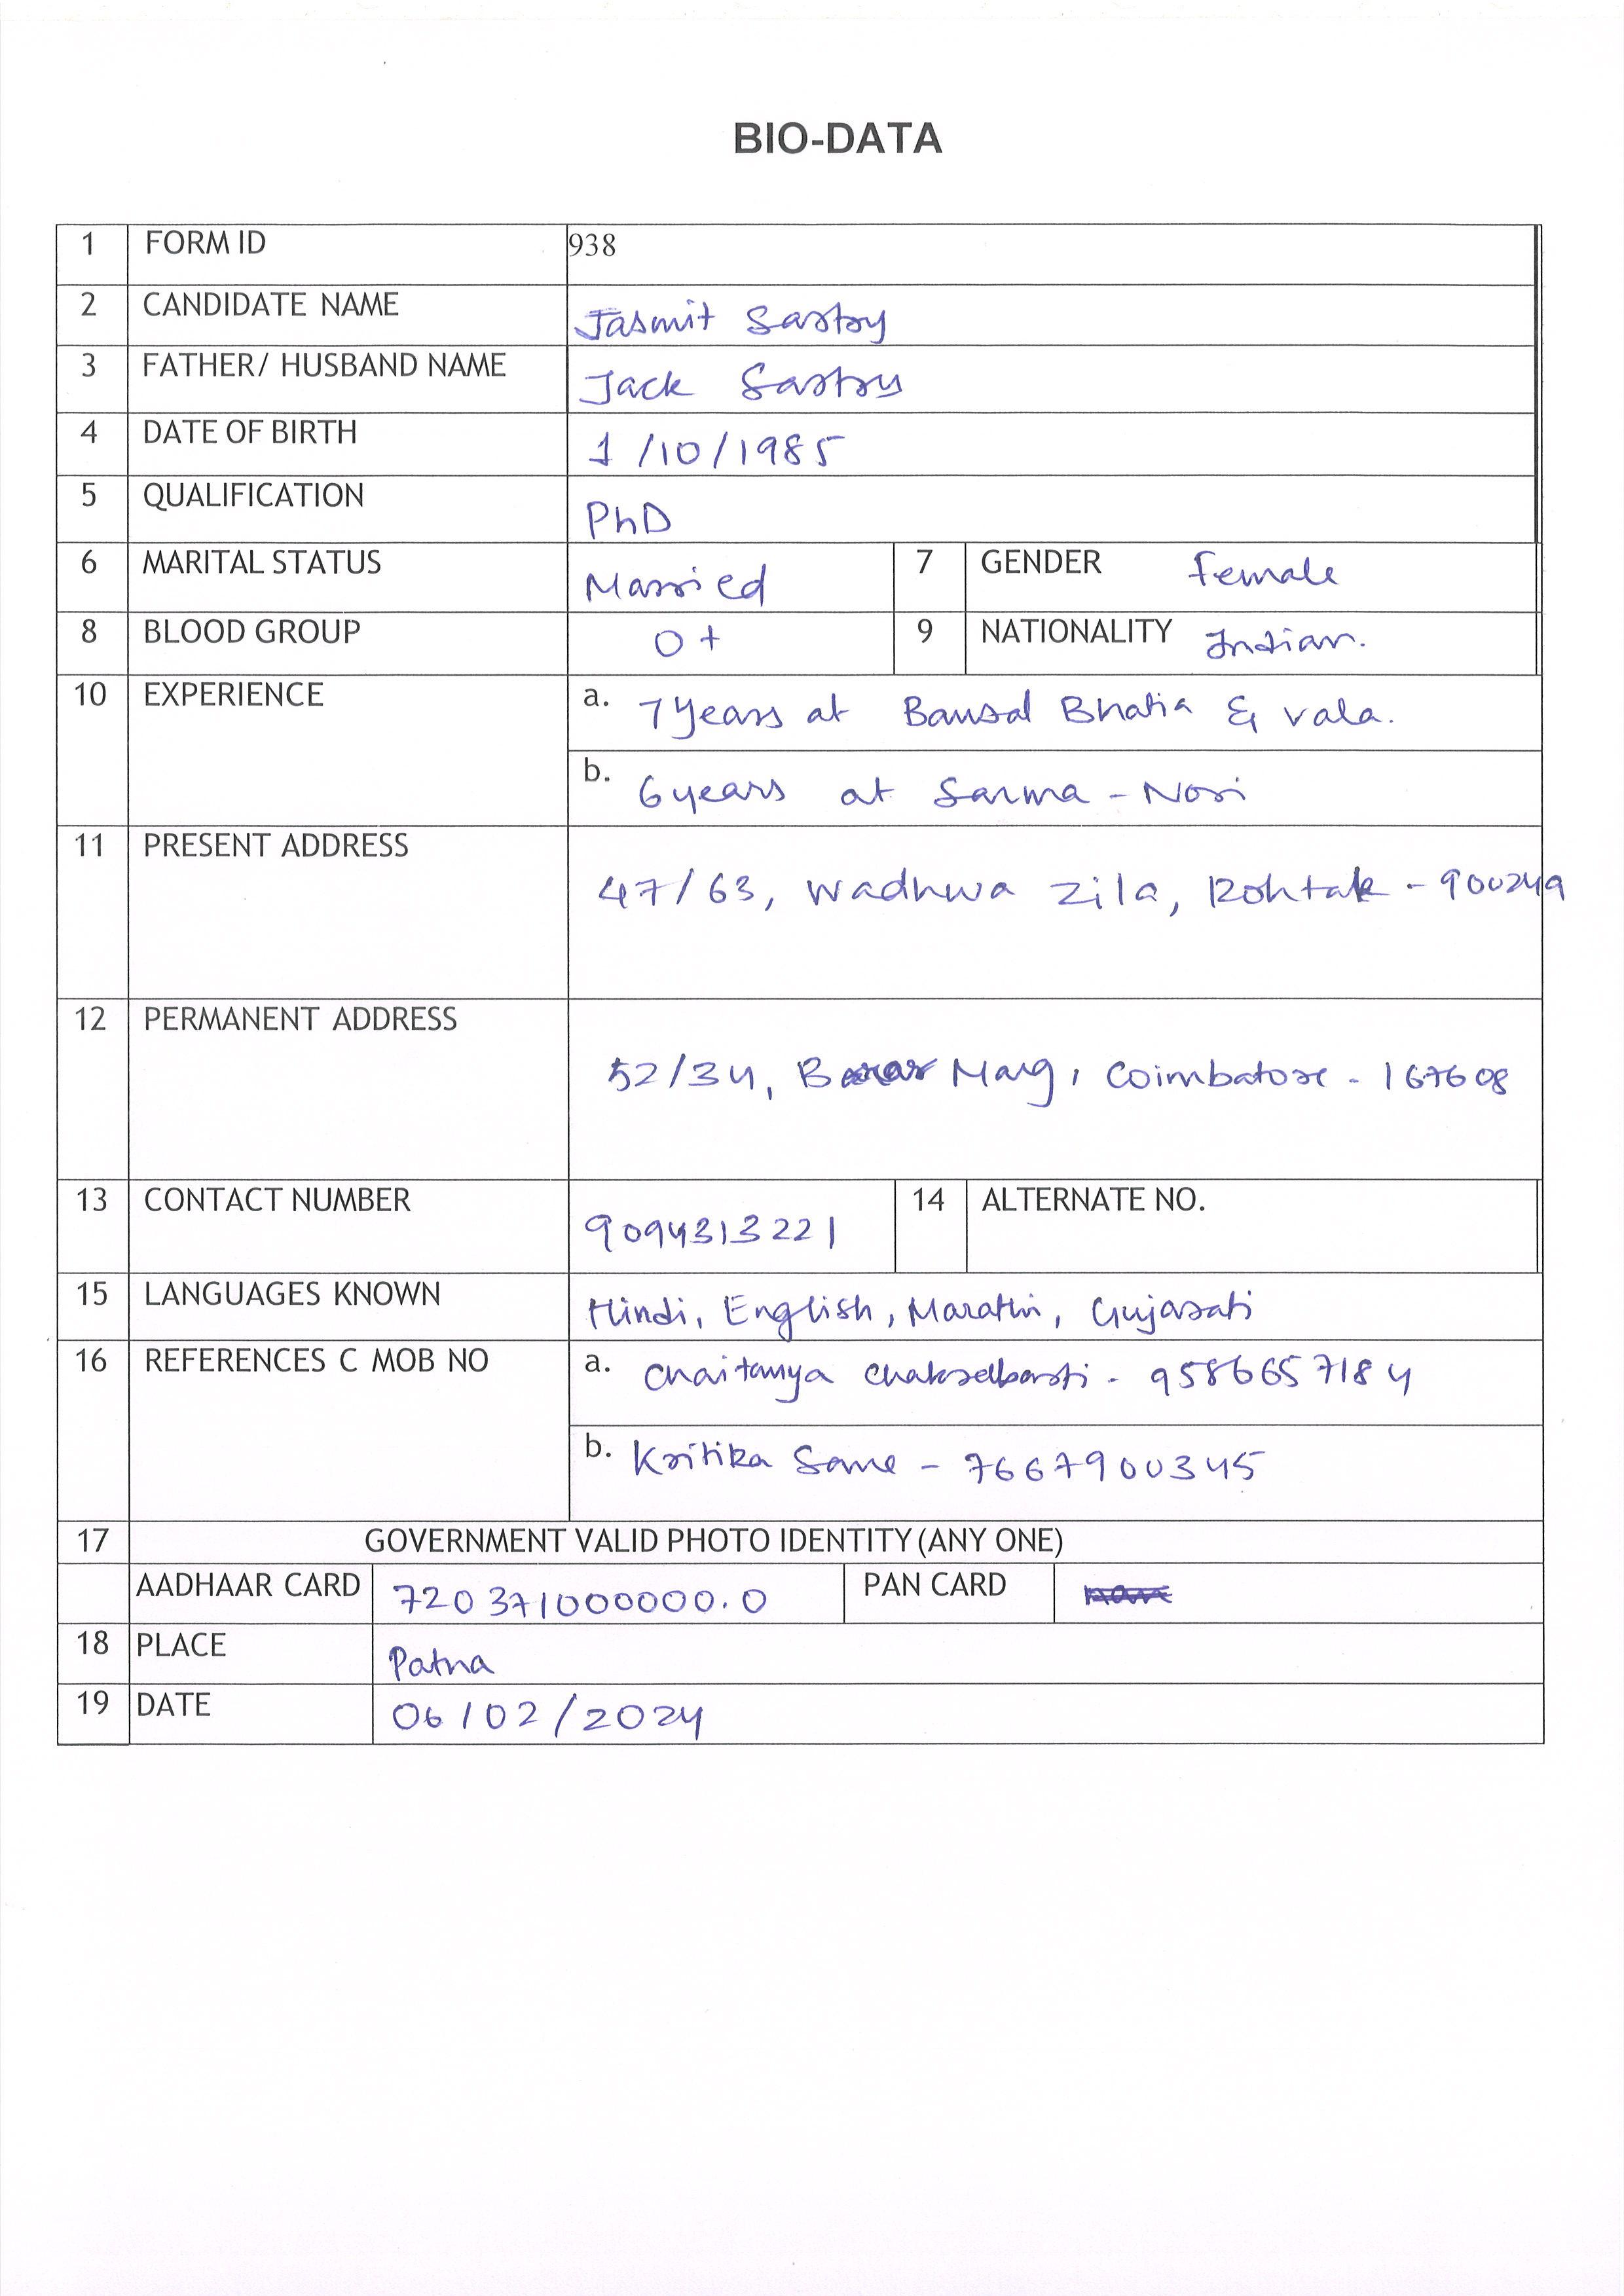 BIO-DATA
1 FORM ID 938
2 CANDIDATE NAME Jasmit Sastry
3 FATHER/ HUSBAND NAME Jack Sastry
4 DATE OF BIRTH 1/10/1985
5 QUALIFICATION PhD
6 MARITAL STATUS Married 7 GENDER Female
8 BLOOD GROUP O+ 9 NATIONALITY Indian.
10 EXPERIENCE a. 7 years at Bansal Bhatia & vala.
b. 6 years at Sarma - Nori
11 PRESENT ADDRESS 47/63, Wadhwa Zila, Rohtak - 900249
12 PERMANENT ADDRESS 52/34, Marg, Coimbatore - 167608
13 CONTACT NUMBER 9094313221 14 ALTERNATE NO.
15 LANGUAGES KNOWN Hindi, English, Marathi, Gujarati
16 REFERENCES C MOB NO a. Chaitanya - 9586657184
b. Kritika Sane - 7667900345
17 GOVERNMENT VALID PHOTO IDENTITY (ANY ONE)
AADHAAR CARD 720371000000.0 PAN CARD
18 PLACE Patna
19 DATE 06/02/2024